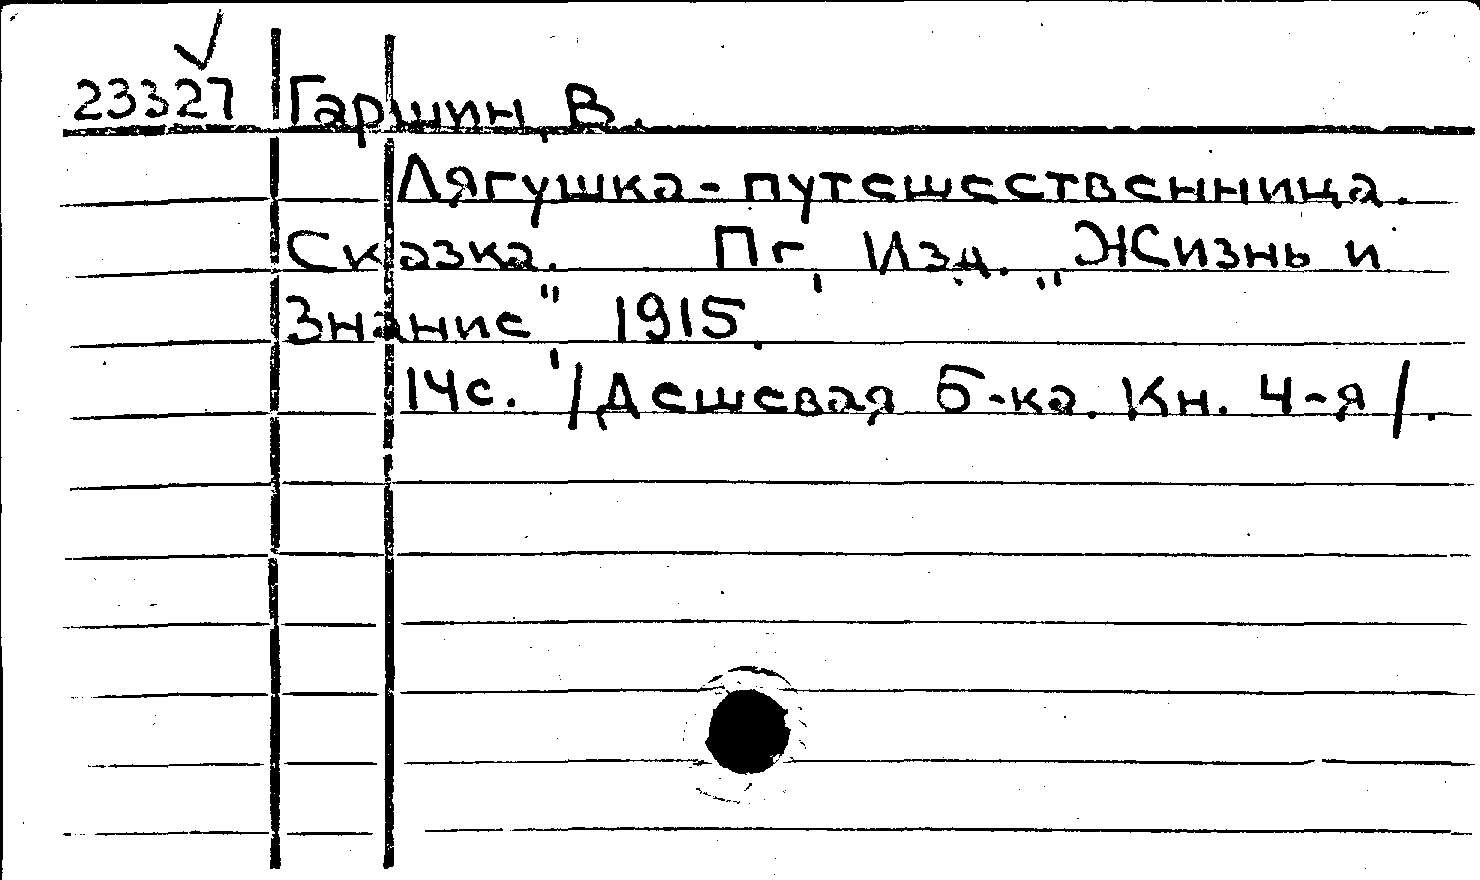 23327 Гаршин, В.
Лягушка-путешественница.
Сказка. Пг, Изд. „Жизнь и
Знание", 1915.
14с. /Дешевая б-ка. Кн. 4-я/.